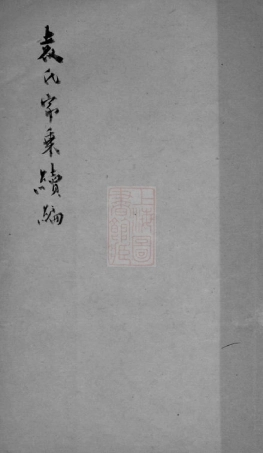 袁氏家乘續編
上海圖書館